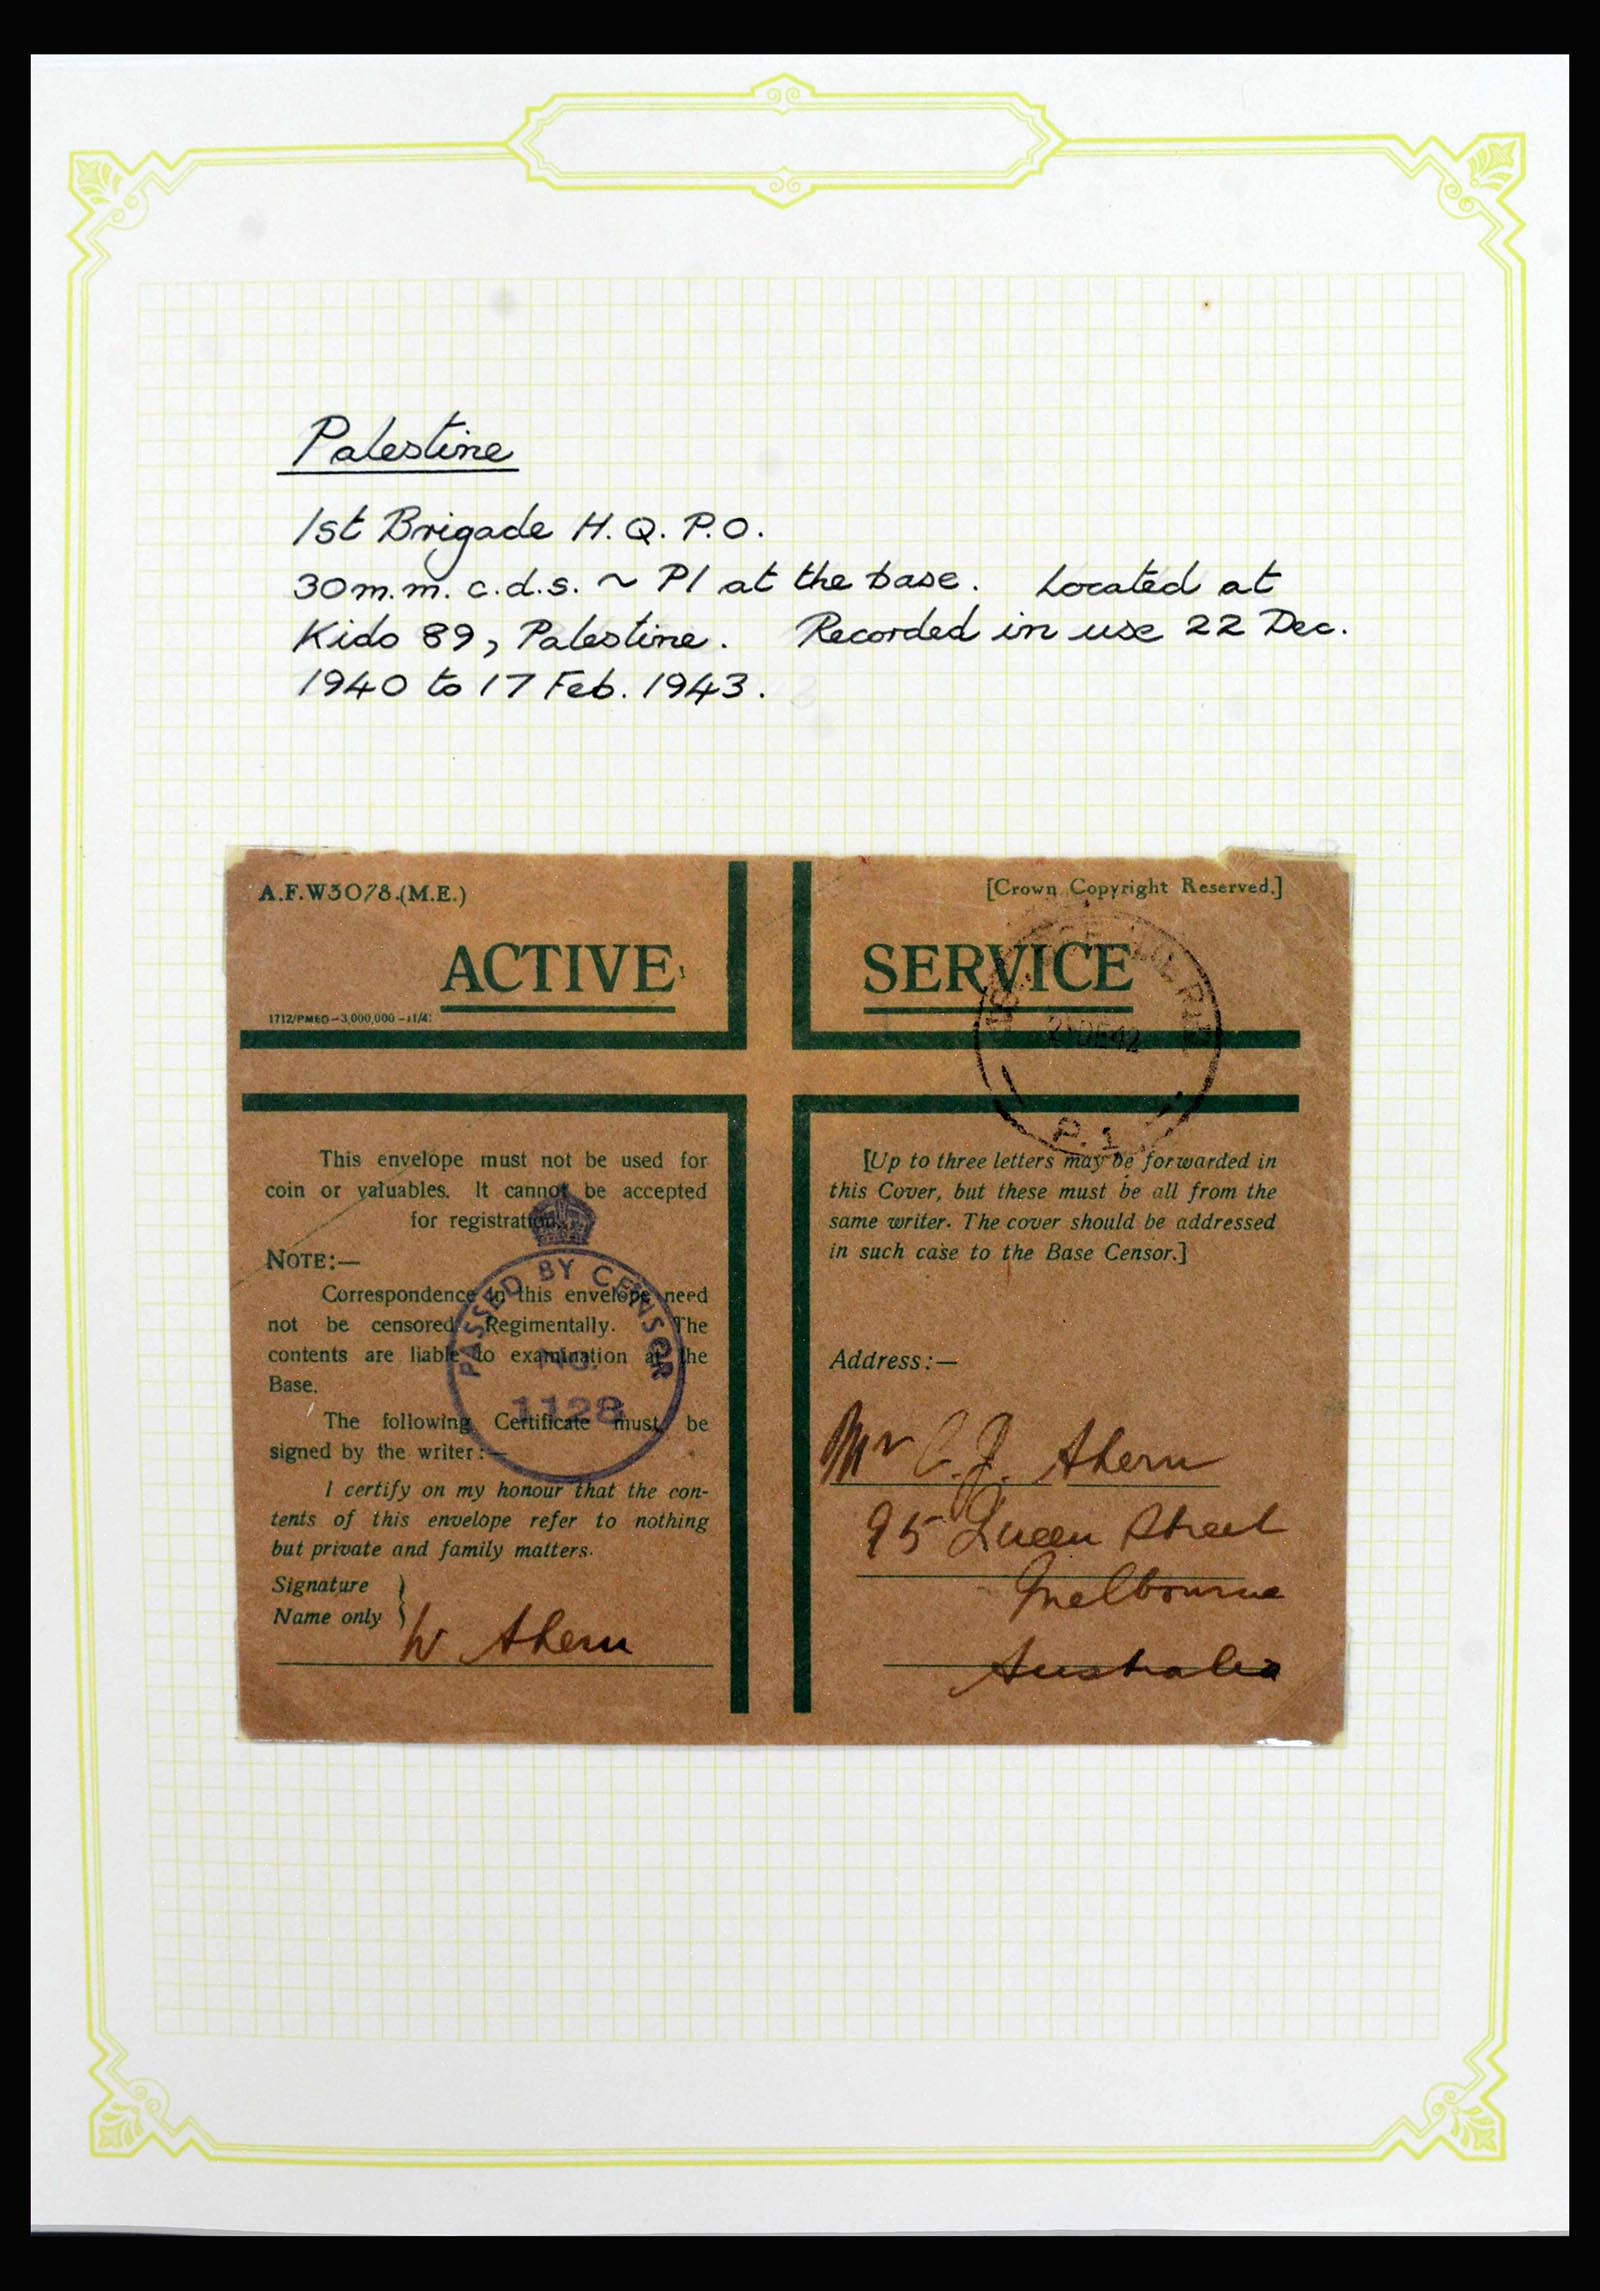 Palestine
1st Brigade H.Q.P.O.
30m.m. c.d.s. ~ P1 at the base. Located at
Kido 89, Palestine. Recorded in use 22 Dec.
1940 to 17 Feb. 1943.
A.F.W3078.(M.E.)
[Crown Copyright Reserved.]
ACTIVE SERVICE
1712/PMEO—3,000,000—11/41
DE 42
P. 1
This envelope must not be used for
coin or valuables. It cannot be accepted
for registration.
NOTE:—
Correspondence in this envelope need
not be censored Regimentally. The
contents are liable to examination at the
Base.
The following Certificate must be
signed by the writer:—
I certify on my honour that the con-
tents of this envelope refer to nothing
but private and family matters.
Signature
Name only
W Ahern
PASSED BY CENSOR
No.
1128
[Up to three letters may be forwarded in
this Cover, but these must be all from the
same writer. The cover should be addressed
in such case to the Base Censor.]
Address:—
Mr C.J. Ahern
95 Queen Street
Melbourne
Australia